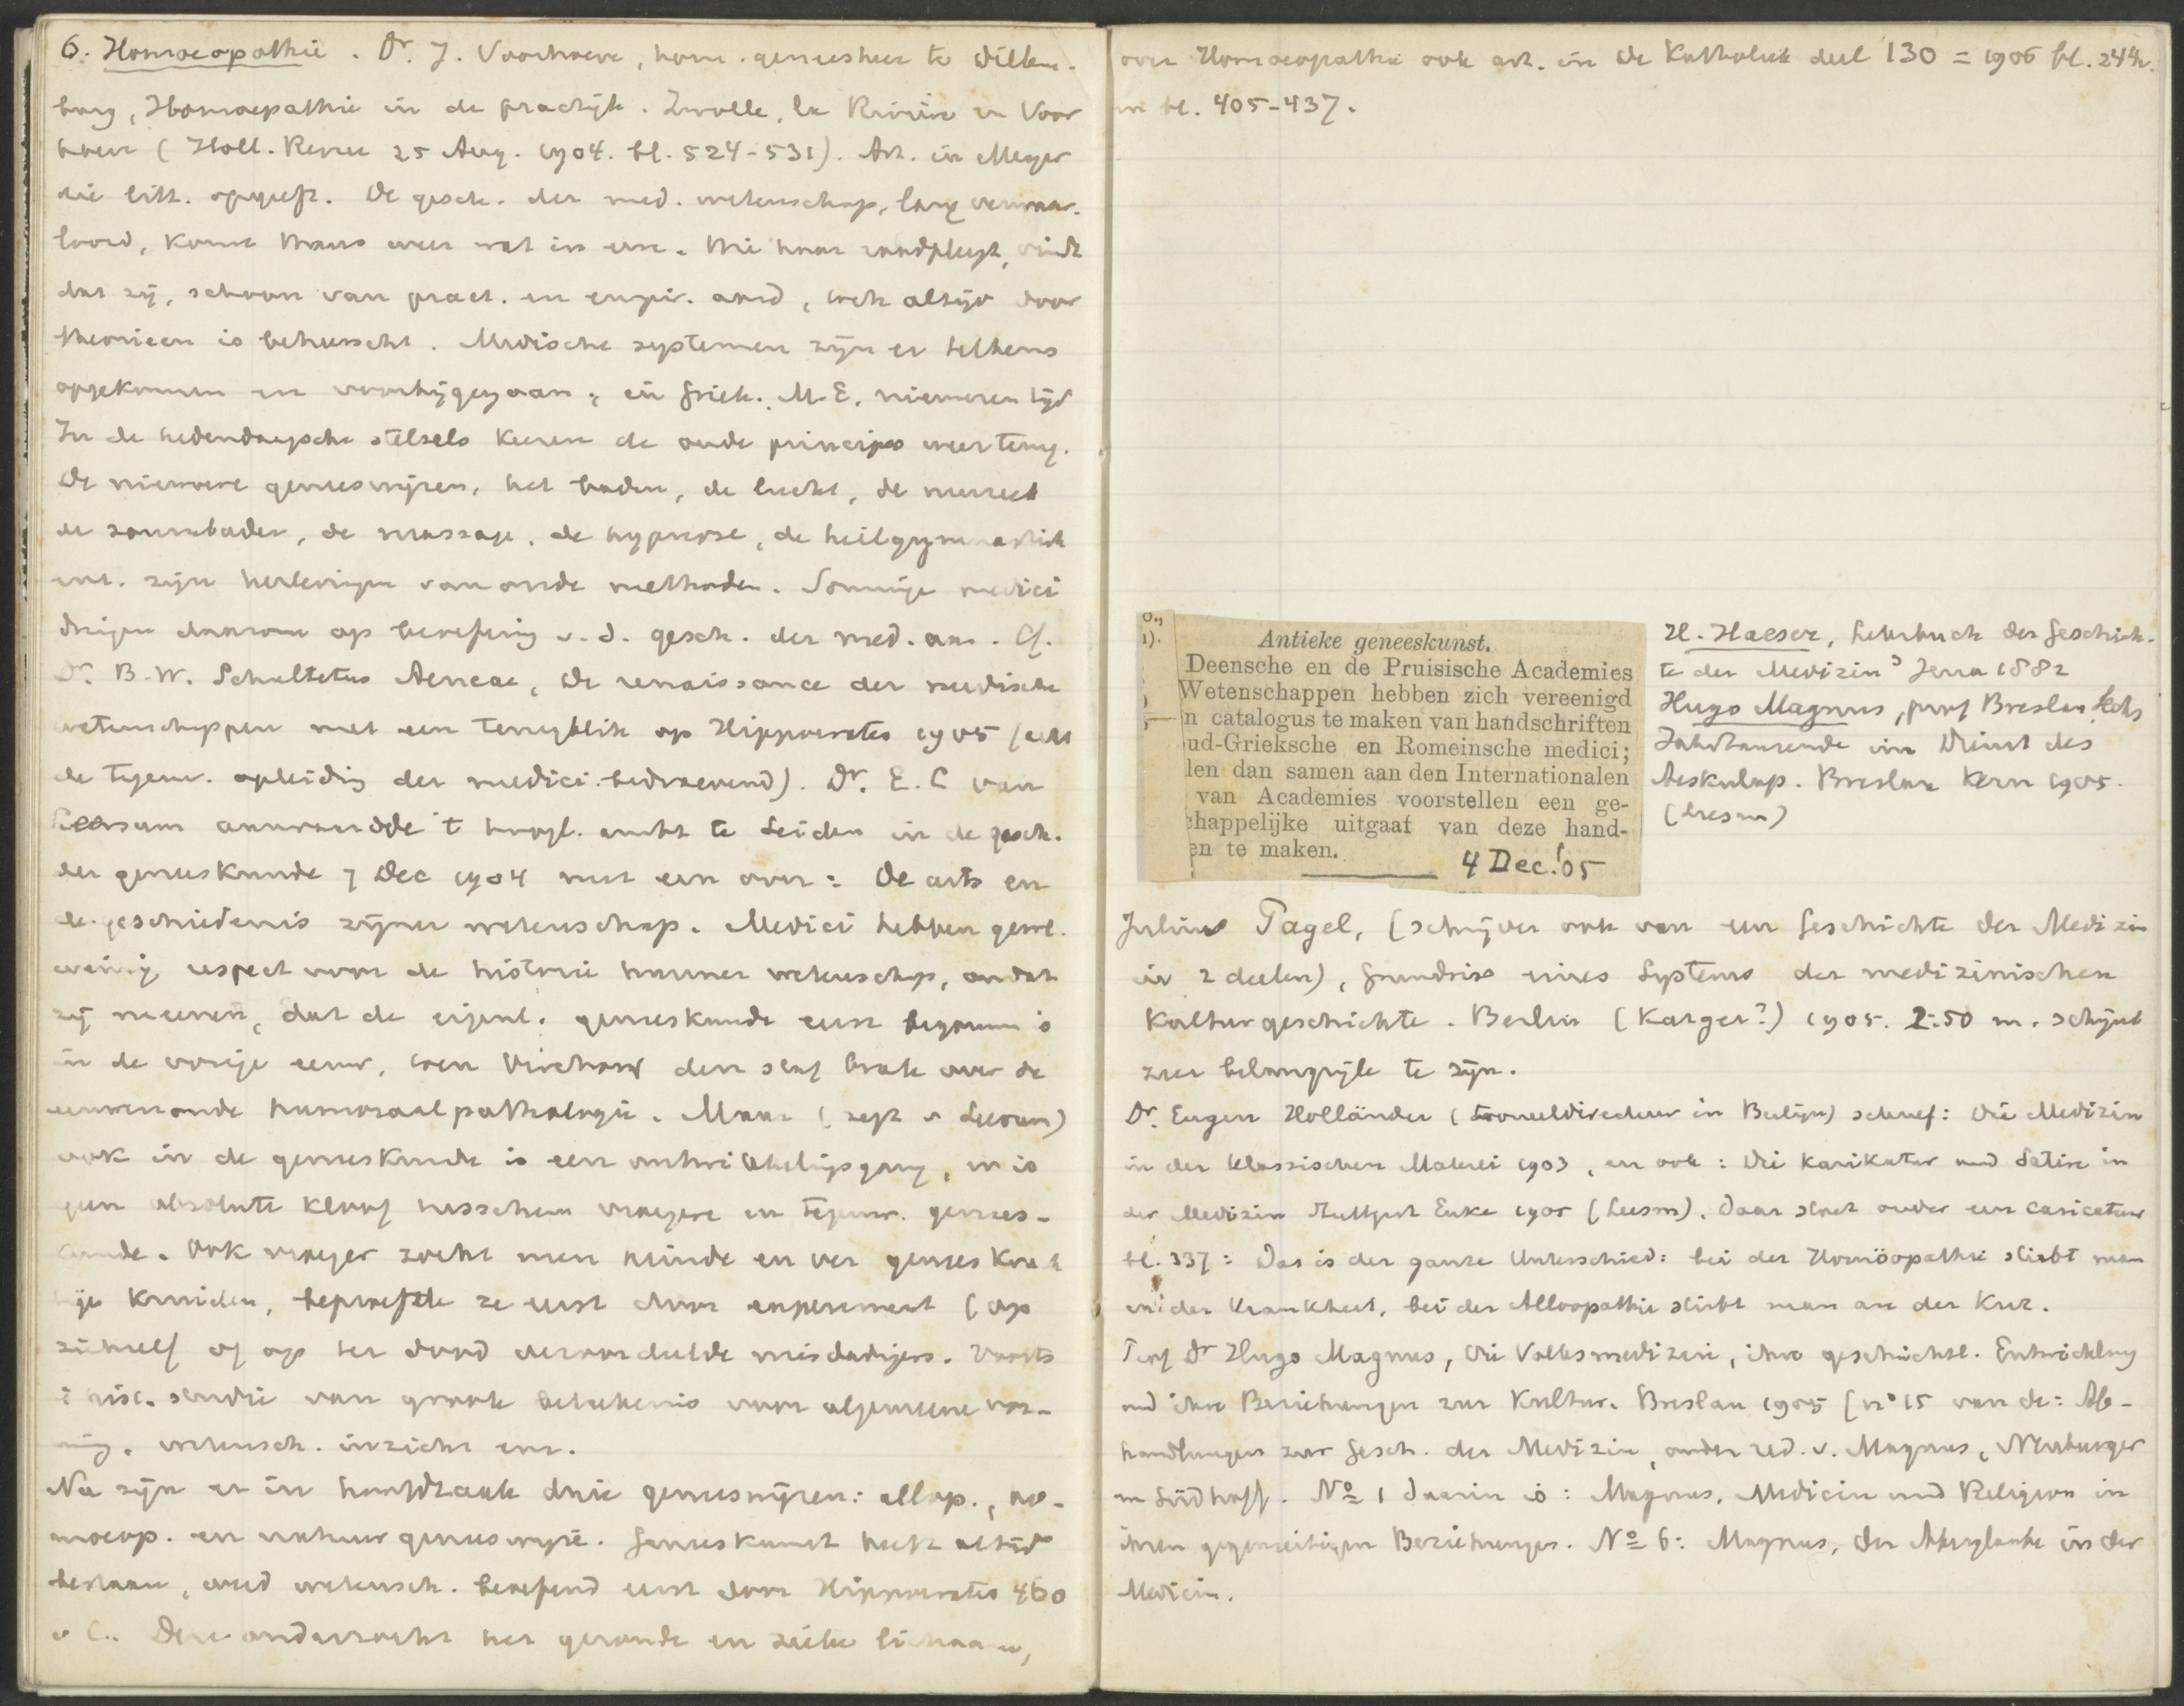 6. Homoeopathie. Dr. J. Voorhoeve, hom. geneesheer te Dillen-
burg, Homoepathie in de practijk. Zwolle, la Rivière en Voor
hoeve (Holl. Revue 25 Aug. 1904. bl. 524-531). Art. in Meyer
die litt. opgeeft. De gesch. der med. wetenschap, lang verwaar-
loosd, komt thans weer wat in eere. Wie haar raadpleegt, vindt
dat zij, schoon van pract. en empir. aard, toch altijd door
theorieen is beheerscht. Medische systemen zijn er telkens
opgekomen en voorbijgegaan; in Griek. M.E. nieuweren tijd
In de hedendaagsche stelsels keeren de oude principes weer terug.
De nieuwere geneeswijzen, het baden, de lucht, de
de zonnebaden, de massage, de hypnose, de heilgymnastiek
enz. zijn herlevingen van oude methoden. Sommige medici
dringen daarom op beoefening v. d. gesch. der med. aan. Cf.
Dr. B.W. Schultetus Aeneae, De renaissance der medische
wetenschappen met een terugblik op Hippocrates 1905 (acht
de tegenw. opleiding der medici bedroevend). Dr. E.C van
Leersum aanvaardde 't hoogl. ambt te Leiden in de gesch.
der geneeskunde 7 Dec 1904 met een over: De arts en
de geschiedenis zijner wetenschap. Medici hebben gewl.
weinig respect voor de historie hunner wetenschap, omdat
zij meenen, dat de eigenl. geneeskunde eerst begonnen is
in de vorige eeuw, toen Virchow den staf brak over de
eeuwenoude humoraalpathologie. Maar (zegt v Leersum)
ook in de geneeskunde is een ontwikkelingsgang, en is
geen absolute kloof tusschen vroegere en tegenw. genees-
kunde. Ook vroeger zocht men heinde en ver geneeskrach
tige kruiden, beproefde ze eerst door experiment (op
zichzelf of op ter dood veroordeelde misdadigers. Voorts
is hist. studie van groote beteekenis voor algemeene vor-
ming, wetensch. inzicht enz.
Nu zijn er in hoofdzaak drie geneeswijzen: allop., ho-
moeop. en natuurgeneeswijze. Geneeskunst heeft altijd
bestaan, werd wetensch. beoefend eerst door Hippocrates 460
v C. Deze onderzocht het gezonde en zieke lichaam,
over Homoeopathie ook art. in De Katholiek deel 130 = 1906 bl. 244v.
en bl. 405-437.
0.,
1).
Antieke geneeskunst.
Deensche en de Pruisische Academies
Wetenschappen hebben zich vereenigd
n catalogus te maken van handschriften
ud-Grieksche en Romeinsche medici;
len dan samen aan den Internationalen
van Academies voorstellen een ge-
chappelijke uitgaaf van deze hand-
en te maken.
4 Dec. '05
H. Haeser, Lehrbuch der Geschich-
te der Medizin 3 Jena 1882
Hugo Magnus, prof Breslau, Sechs
Jahrtausende im Dienst des
Aeskulap. Breslau Kern 1905.
(Leesm)
Julius Pagel, (schrijver ook van een Geschichte der Medizin
in 2 deelen), Grundriss eines Systems der medizinischen
Kulturgeschichte. Berlin (Karger?) 1905. 2.50 m. schijnt
zeer belangrijk te zijn.
Dr. Eugen Holländer (tooneeldirecteur in Berlijn) schreef: Die Medizin
in der klassischen Malerei 1903, en ook: Die Karikatur und Satire in
der Medizin Stuttgart Enke 1905 (Leesm). Daar staat onder een caricatuur
bl. 337: Das is der ganze Unterschied: bei der Homöopathie stirbt man
an der Krankheit, bei der Alloopathie stirbt man an der Kur.
Prof Dr Hugo Magnus, Die Volksmedizin, ihre geschichtl. Entwicklung
und ihre Beziehungen zur Kultur. Breslau 1905 [no 15 van de: Ab-
handlungen zur Gesch. der Medizin, onder red. v. Magnus, Neuburger
en Sudhoff. No 1 daarin is: Magnus, Medicin und Religion in
ihren gegenseitigen Beziehungen. No 6: Magnus, Der Aberglaube in der
Medicin.